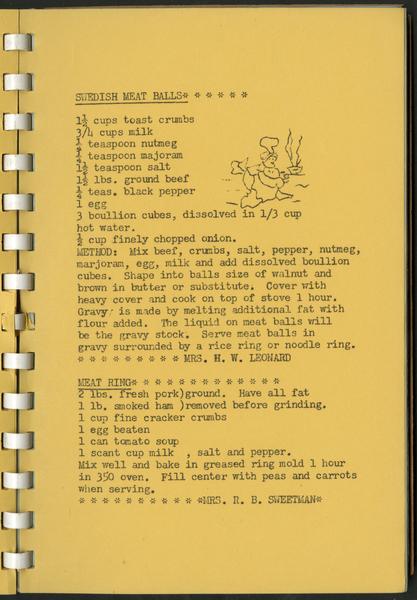 SWEDISH MEAT BALLS* * * * * *
1½ cups toast crumbs
3/4 cups milk
¼ teaspoon nutmeg
¼ teaspoon majoram
1½ teaspoon salt
1½ lbs. ground beef
¼ teas. black pepper
1 egg
3 boullion cubes, dissolved in 1/3 cup
hot water.
½ cup finely chopped onion.
METHOD: Mix beef, crumbs, salt, pepper, nutmeg,
marjoram, egg, milk and add dissolved boullion
cubes. Shape into balls size of walnut and
brown in butter or substitute. Cover with
heavy cover and cook on top of stove 1 hour.
Gravy is made by melting additional fat with
flour added. The liquid on meat balls will
be the gravy stock. Serve meat balls in
gravy surrounded by a rice ring or noodle ring.
* * * * * * * * * MRS. H. W. LEONARD
MEAT RING* * * * * * * * * * * *
2 lbs. fresh pork)ground. Have all fat
1 lb. smoked ham )removed before grinding.
1 cup fine cracker crumbs
1 egg beaten
1 can tomato soup
1 scant cup milk , salt and pepper.
Mix well and bake in greased ring mold 1 hour
in 350 oven. Fill center with peas and carrots
when serving.
* * * * * * * * * * *MRS. R. B. SWEETMAN*